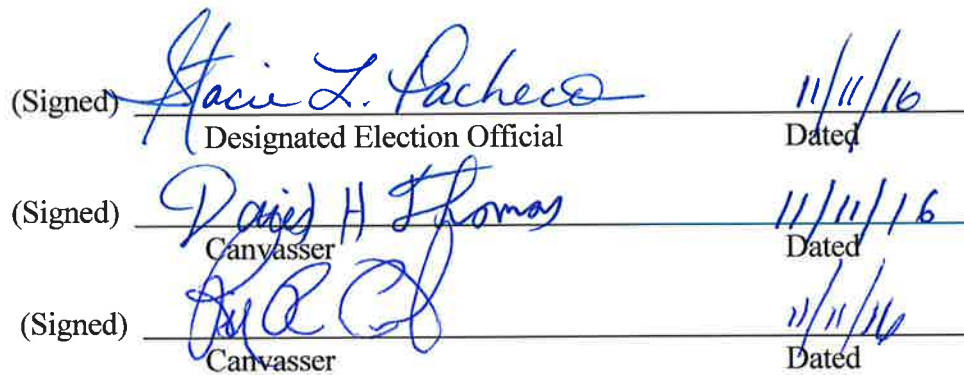 (Signed) Stacie L. Pacheco 11/11/16
Designated Election Official Dated
(Signed) H Thomas 11/11/16
Canvasser Dated
(Signed) 11/11/16
Canvasser Dated